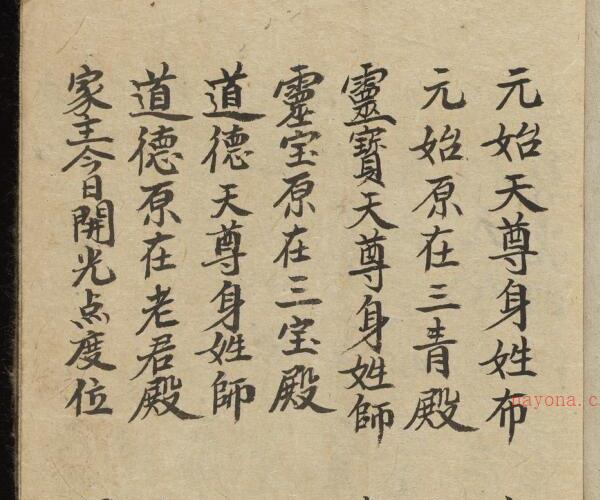 元始天尊身姓布
元始原在三青殿
靈寶天尊身姓師
靈宝原在三宝殿
道德天尊身姓師
道德原在老君殿
家主今日開光点度位
nayona.c